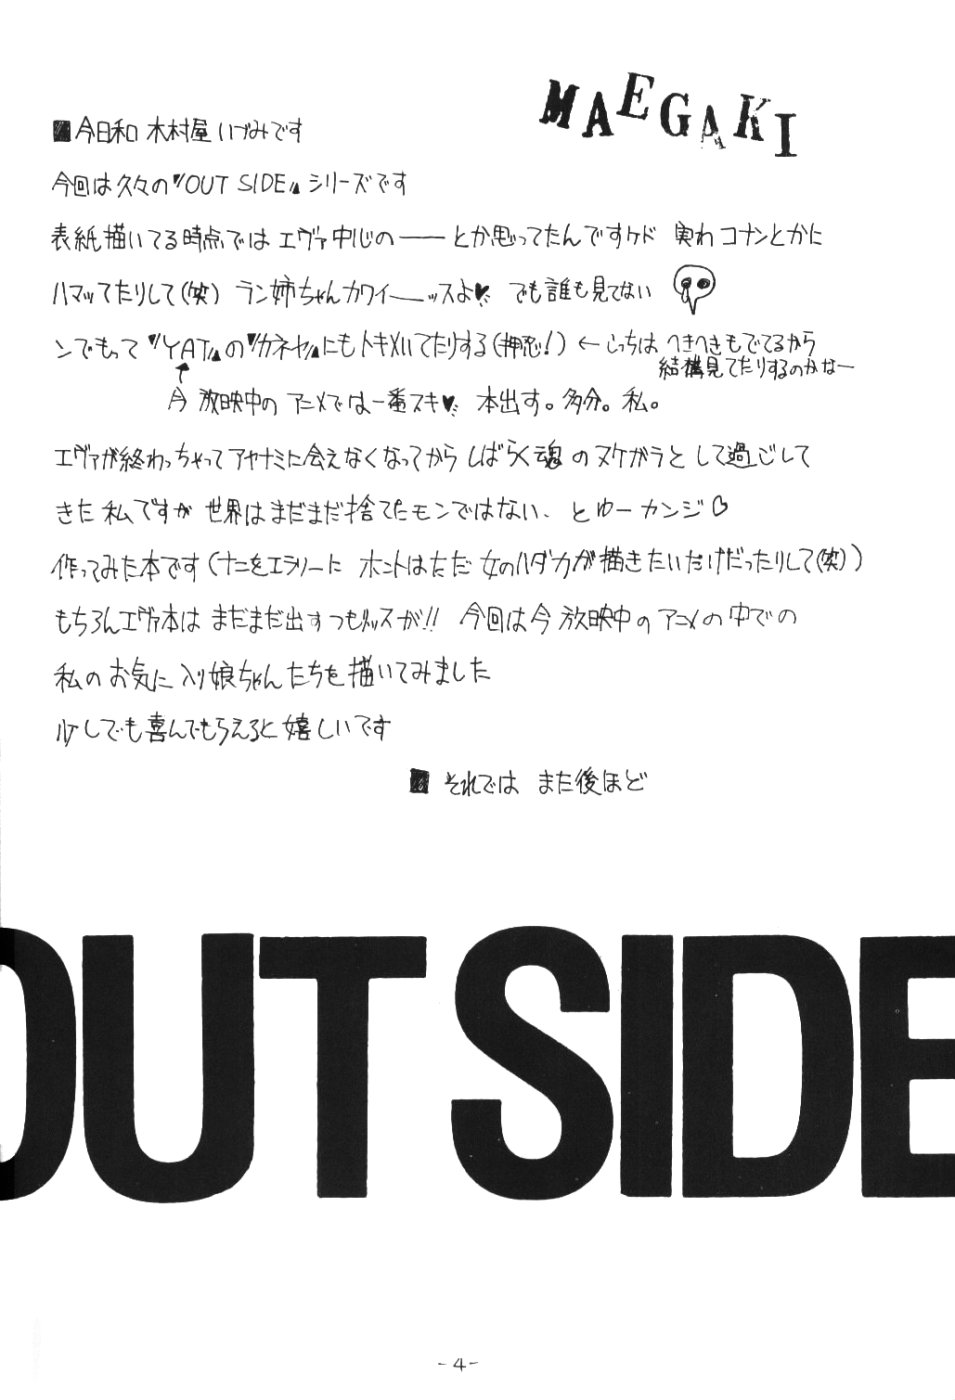 MAEGAKI
■今日和 木村屋いづみです
今回は久々の『OUT SIDE』シリーズです
表紙描いてる時点では エヴァ中心の——とか思ってたんですケド 実わ コナンとかに
ハマッてたりして(笑) ラン姉ちゃんカワイ——ッスよ♥ でも誰も見てない
ンでもって『YAT』の『カネヤ』にもトキメいてたりする(押忍!) ←こっちは へきへきもでてるから
結構見てたりするのかなー
↑
今 放映中の アニメでは一番スキ♥ 本出す。多分。私。
エヴァが終わっちゃって アヤナミに会えなくなってから しばらく魂 の ヌケガラと して過ごして
きた 私ですが 世界は まだまだ捨てたモンではない、 と ゆー カンジ♡
作ってみた本です(ナニをエラソーに ホントはただ 女のハダカが描きたいだけだったりして(笑))
もちろんエヴァ本は まだまだ出すつもりッスが!! 今回は今 放映中の アニメの 中での
私の お気に入り娘ちゃん たちを 描いてみました
少しでも喜んでもらえると 嬉しいです
■ それでは また後ほど
OUT SIDE
-4-